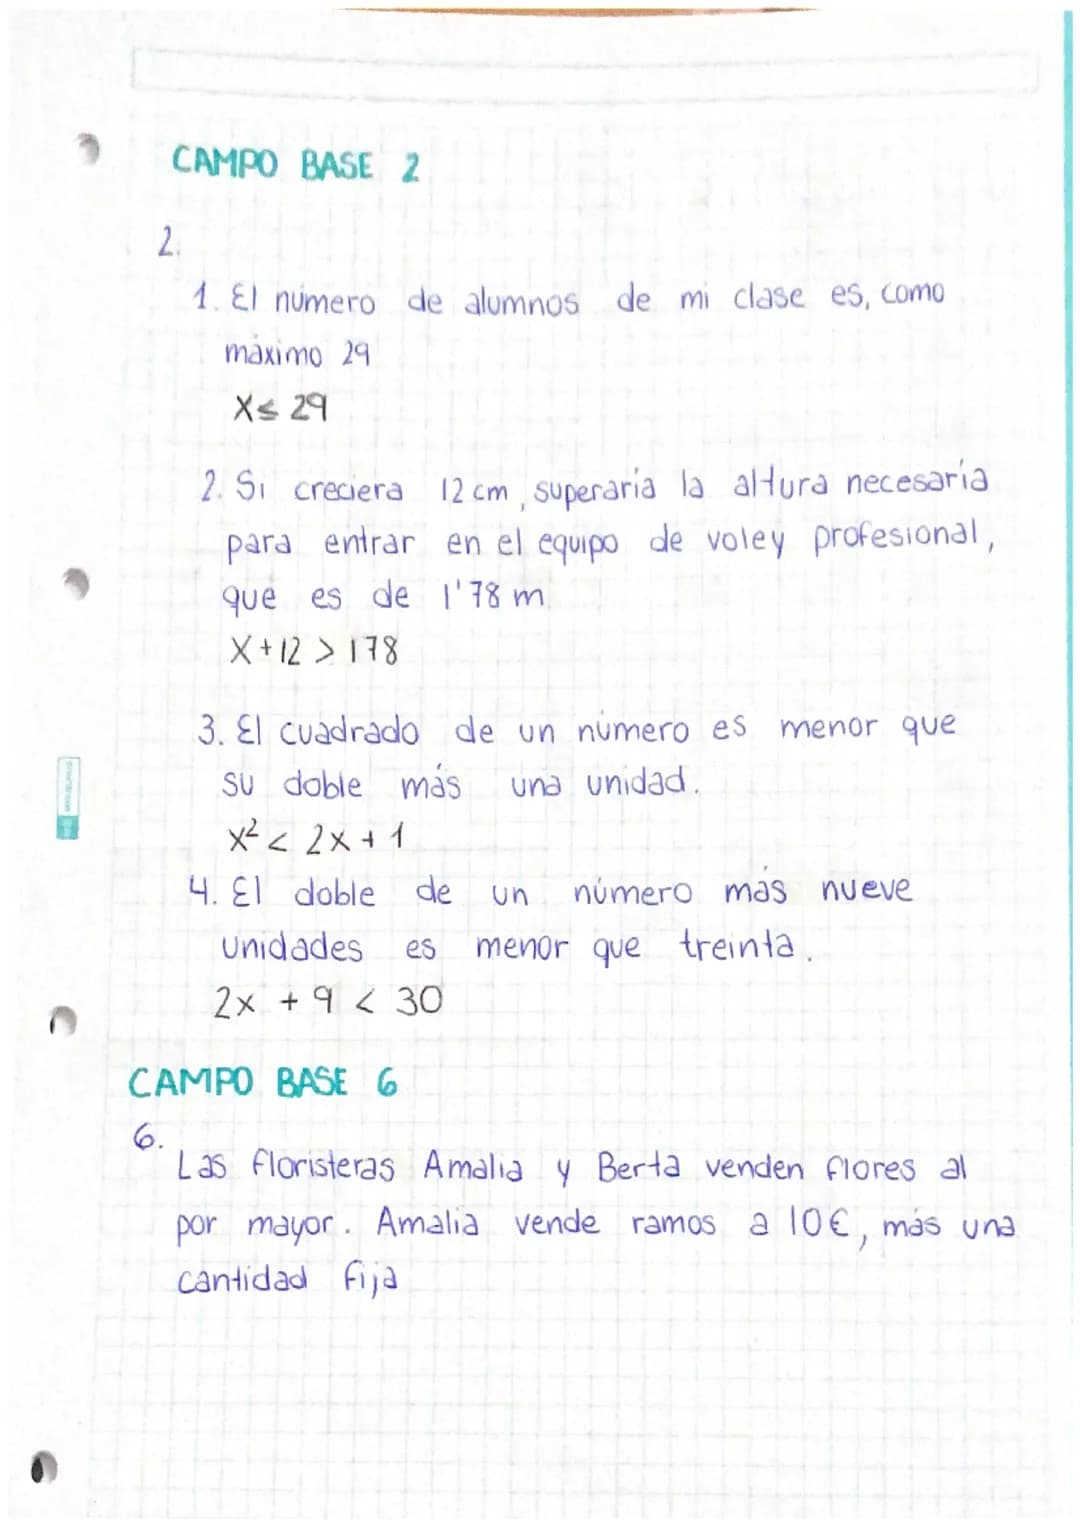 CAMPO BASE 2
2.
1. El número de alumnos de mi clase es, como
máximo 29
X ≤ 29
2. Si creciera 12 cm, superaría la altura necesaria
para entrar en el equipo de voley profesional,
que es de 1'78 m
X + 12 > 178
3. El cuadrado de un número es menor que
su doble más una unidad.
x² < 2x + 1
4. El doble de un número más nueve
unidades es menor que treinta.
2x + 9 < 30
CAMPO BASE 6
6.
Las floristeras Amalia y Berta venden flores al
por mayor. Amalia vende ramos a 10€, más una
cantidad fija